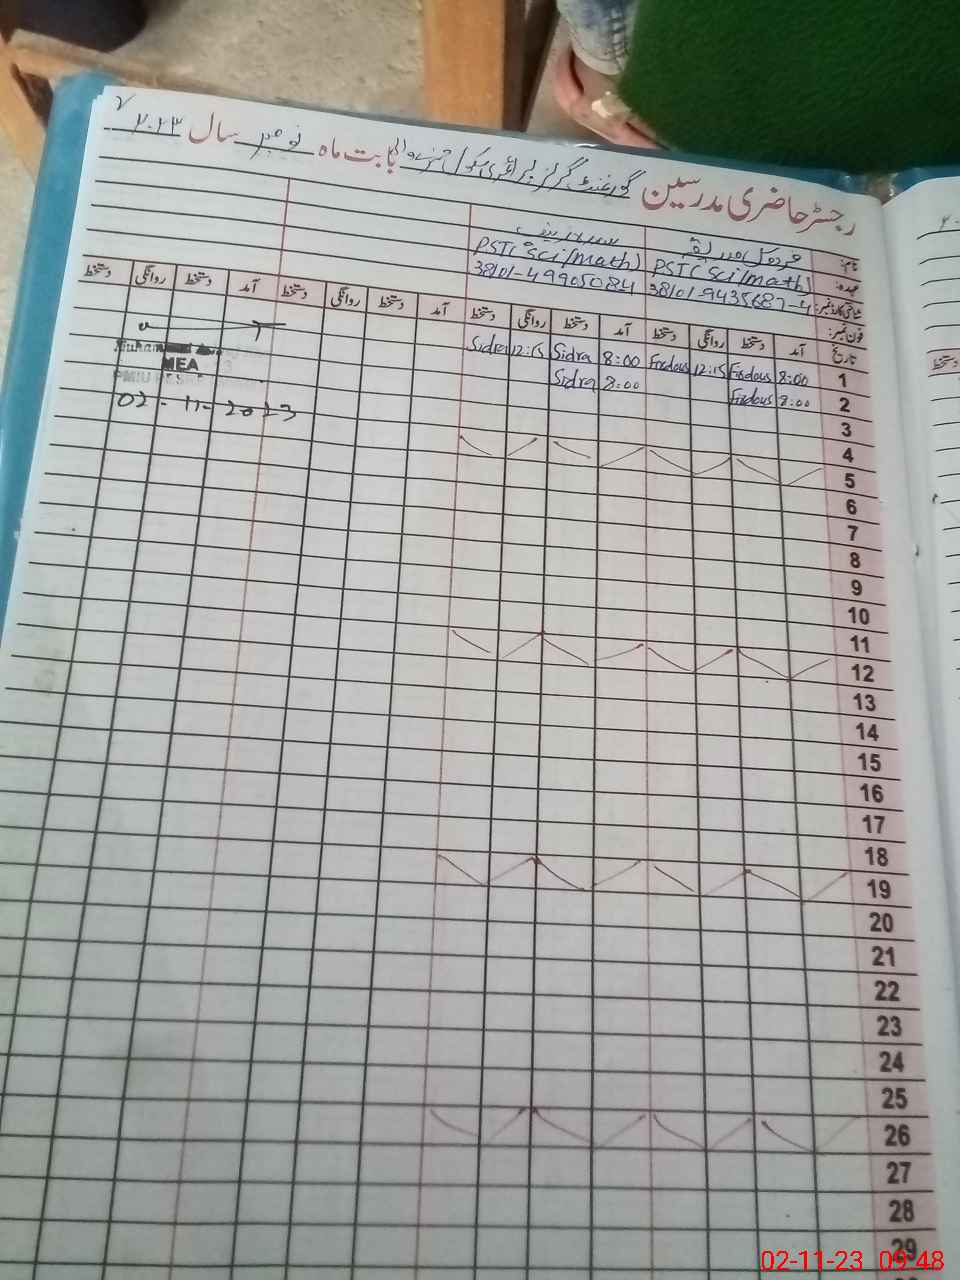 رجسٹر حاضری مدرسین گورنمنٹ گرلز پرائمری سکول بابت ماہ نومبر سال ۲۰۲۳
نام:
عہدہ: PST(Sci/Math) PST(Sci/Math)
شناختی کارڈ نمبر: 38101-9435687-4 38101-49905084
فون نمبر:
تاریخ آمد دستخط روانگی دستخط آمد دستخط روانگی دستخط آمد دستخط روانگی دستخط آمد دستخط روانگی دستخط
1 8:00 Firdous 12:15 Firdous 8:00 Sidra 12:15 Sidra
2 8:00 Firdous 8:00 Sidra
3
4
5
6
7
8
9
10
11
12
13
14
15
16
17
18
19
20
21
22
23
24
25
26
27
28
29
Muhammad
MEA
PMIU
02-11-2023
دستخط
02-11-23 09:48